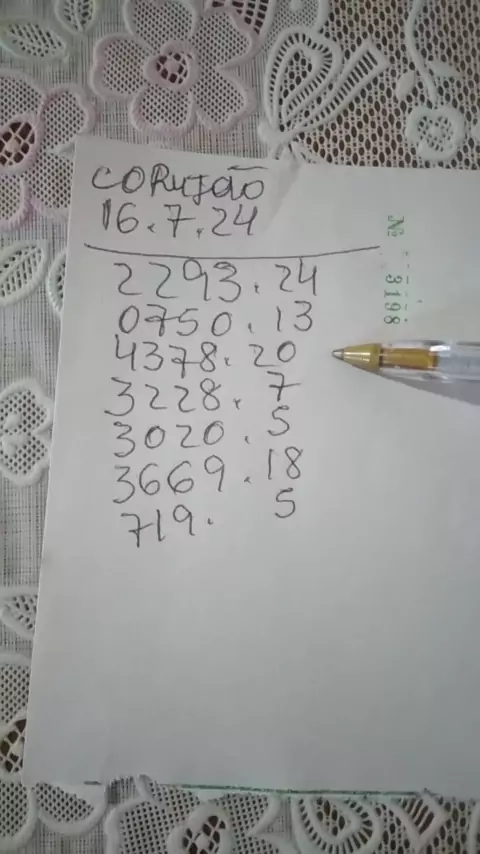 CORUJÃO
16.7.24
2293.24
0750.13
4378.20
3228.7
3020.5
3669.18
719. 5
Nº 3198